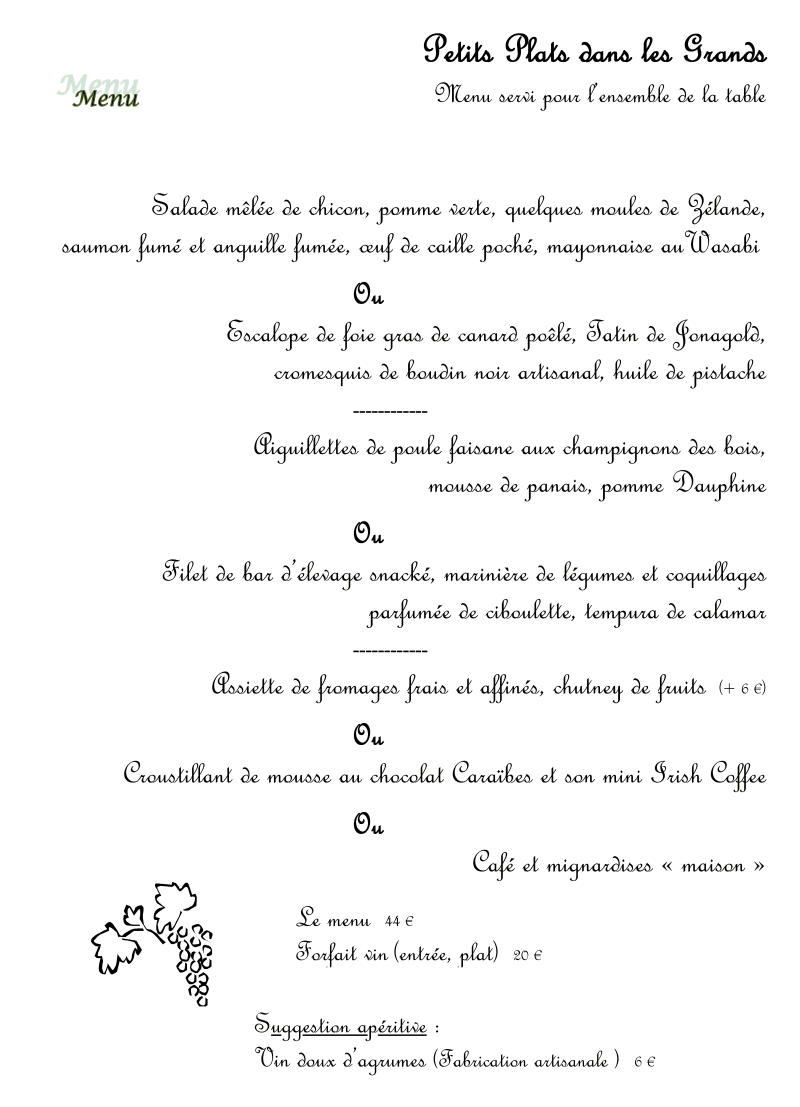 Petits Plats dans les Grands
Menu
Menu
Menu servi pour l'ensemble de la table
Salade mêlée de chicon, pomme verte, quelques moules de Zélande,
saumon fumé et anguille fumée, œuf de caille poché, mayonnaise au Wasabi
Ou
Escalope de foie gras de canard poêlé, Tatin de Jonagold,
cromesquis de boudin noir artisanal, huile de pistache
------------
Aiguillettes de poule faisane aux champignons des bois,
mousse de panais, pomme Dauphine
Ou
Filet de bar d'élevage snacké, marinière de légumes et coquillages
parfumée de ciboulette, tempura de calamar
------------
Assiette de fromages frais et affinés, chutney de fruits (+ 6 €)
Ou
Croustillant de mousse au chocolat Caraïbes et son mini Irish Coffee
Ou
Café et mignardises « maison »
Le menu 44 €
Forfait vin (entrée, plat) 20 €
Suggestion apéritive :
Vin doux d'agrumes (Fabrication artisanale ) 6 €